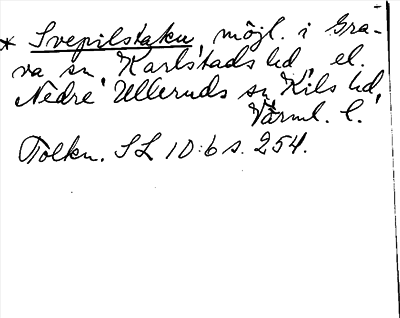 * Svepilstaku, möjl. i Gra-
va sn, Karlstads hd, el.
Nedre Ulleruds sn, Kils hd,
Värml. l.
Tolkn. SL 10:6 s. 254.